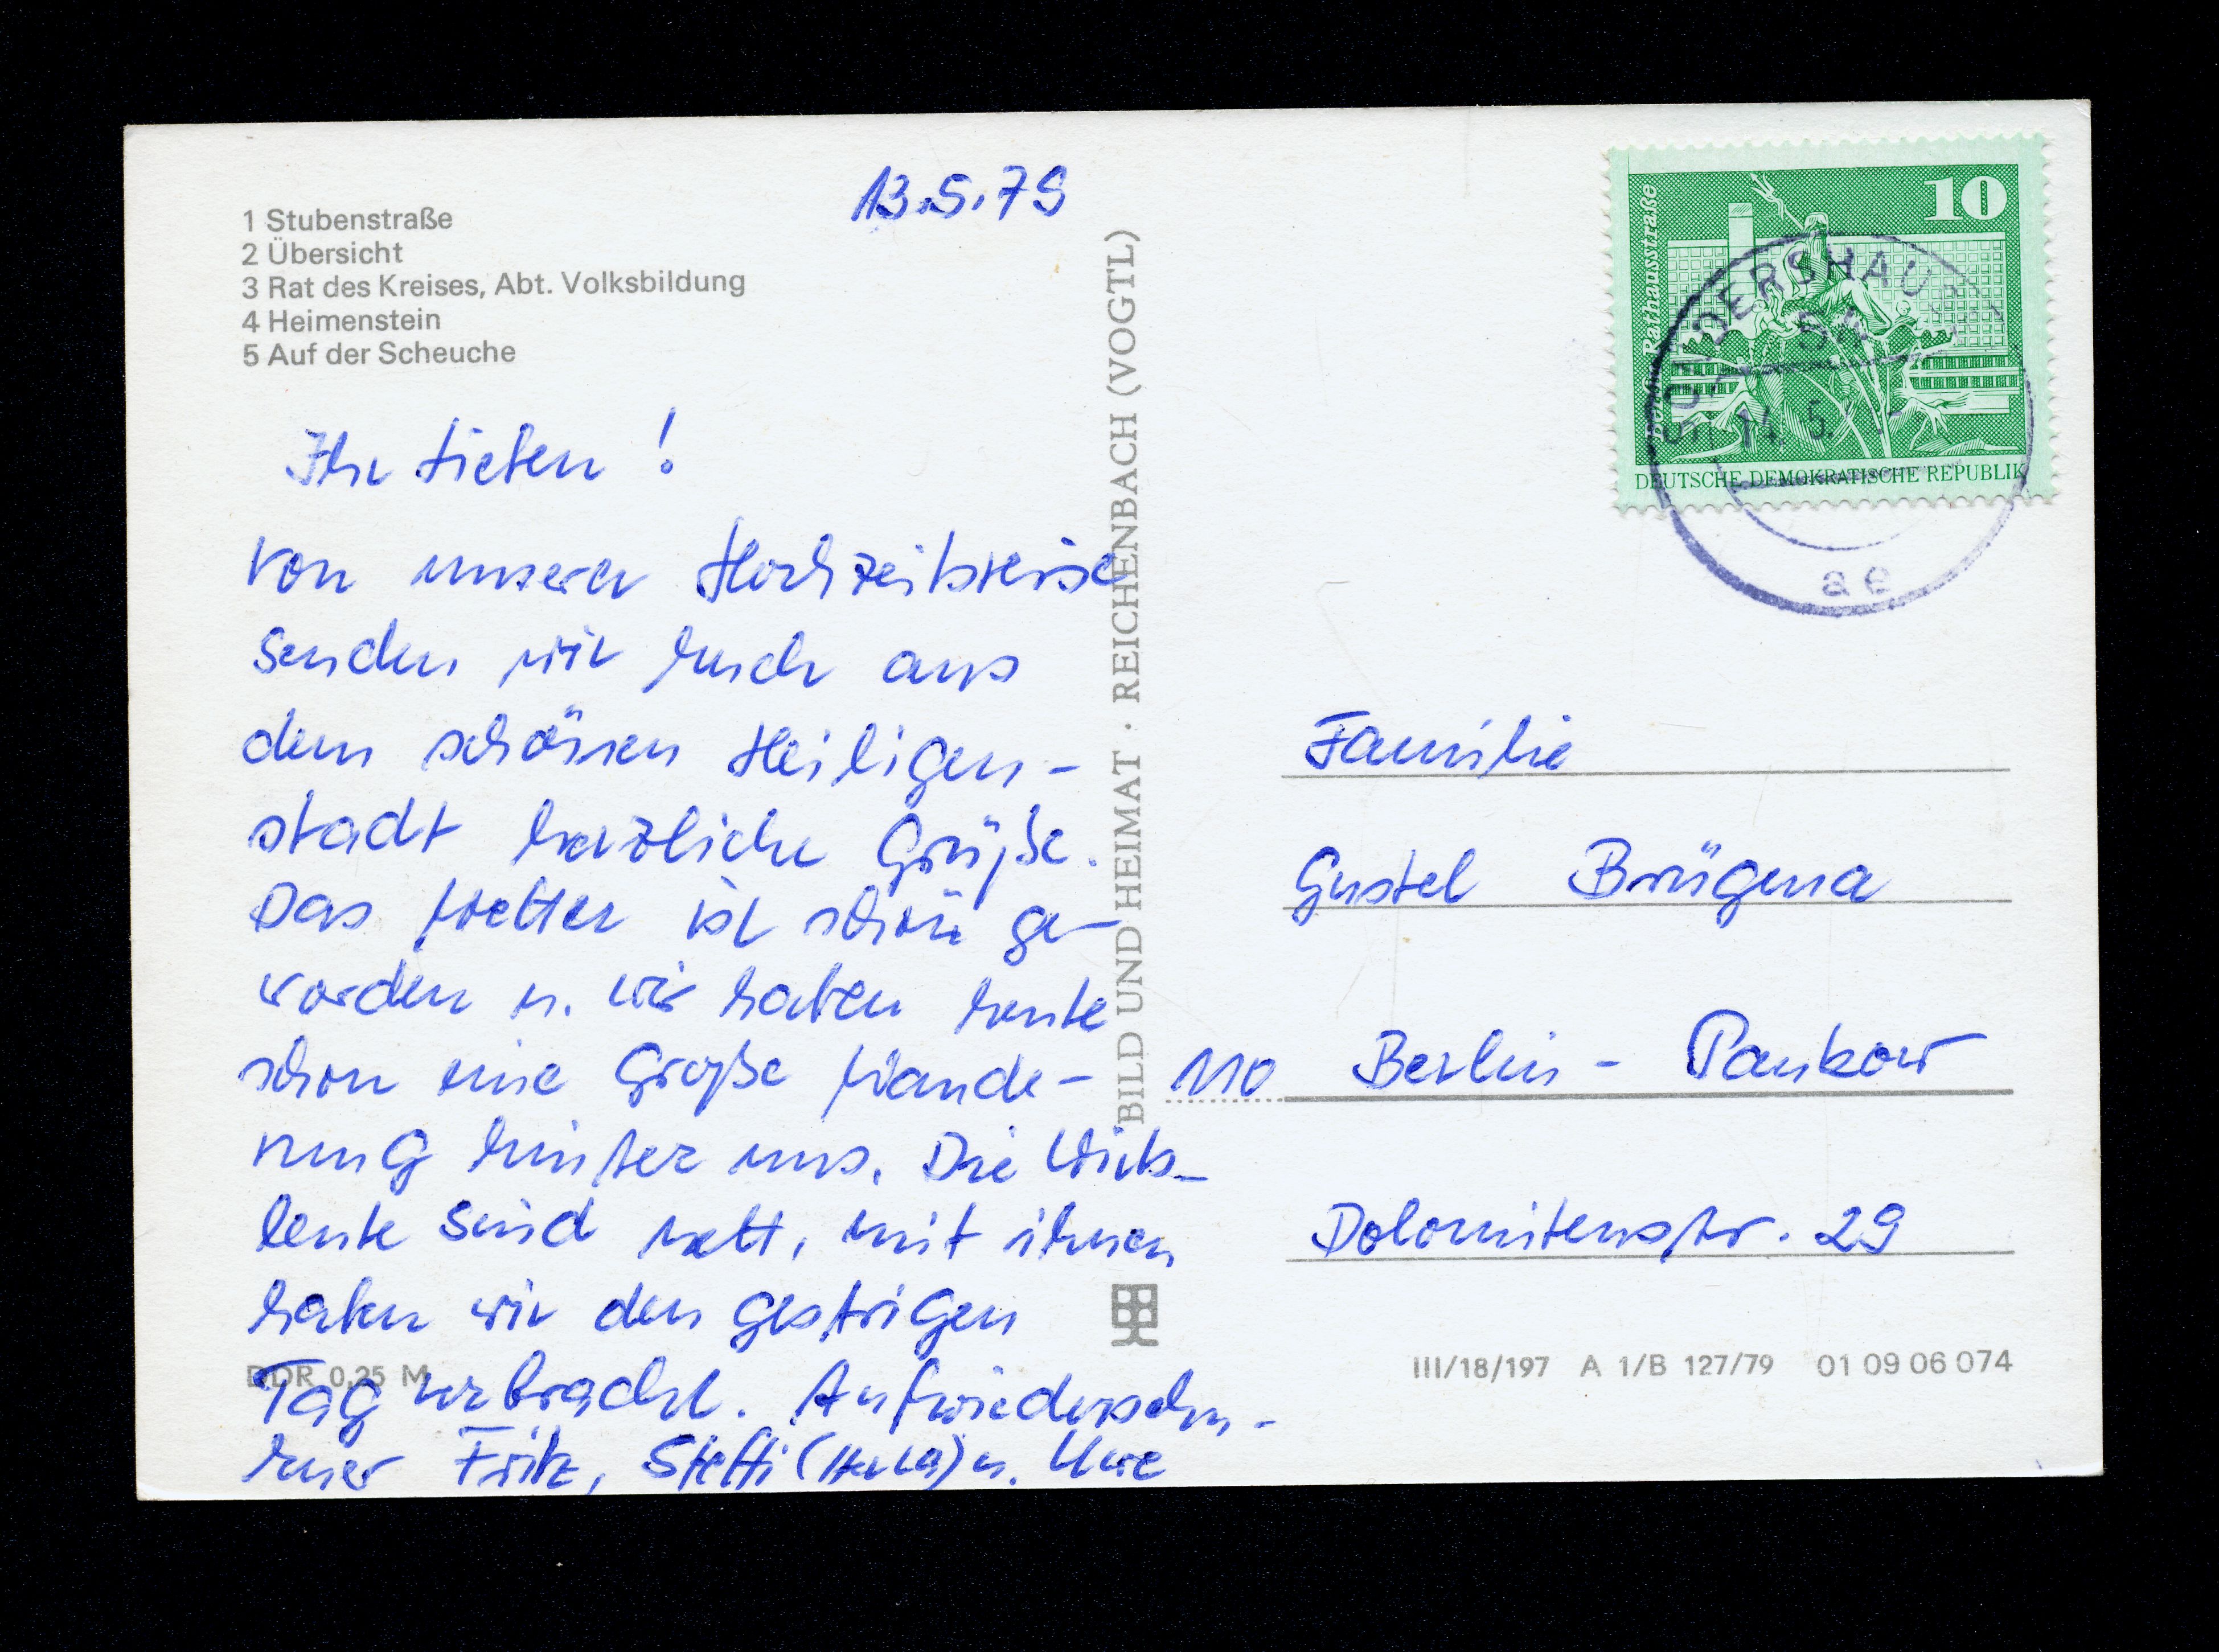 1 Stubenstraße
2 Übersicht
3 Rat des Kreises, Abt. Volksbildung
4 Heimenstein
5 Auf der Scheuche
13.5.79
Ihr Lieben!
Von unserer Hochzeitsreise
senden wir Euch aus
dem schönen Heiligen-
stadt herzliche Grüße.
Das Wetter ist schön ge-
worden u. wir haben heute
schon eine Große Wande-
rung hinter uns. Die Wirts-
leute sind nett, mit ihnen
haben wir den gestrigen
Tag verbracht. Aufwiedersehn-
Euer Fritz, Steffi () u. Uwe
DDR 0,25 M
BILD UND HEIMAT · REICHENBACH (VOGTL)
10
Rathausstraße
DEUTSCHE DEMOKRATISCHE REPUBLIK
ONDERSHAU
54
14. 5.
ae
Familie
Gustel Brügena
110 Berlin - Pankow
Dolomitenstr. 29
III/18/197 A 1/B 127/79 01 09 06 074